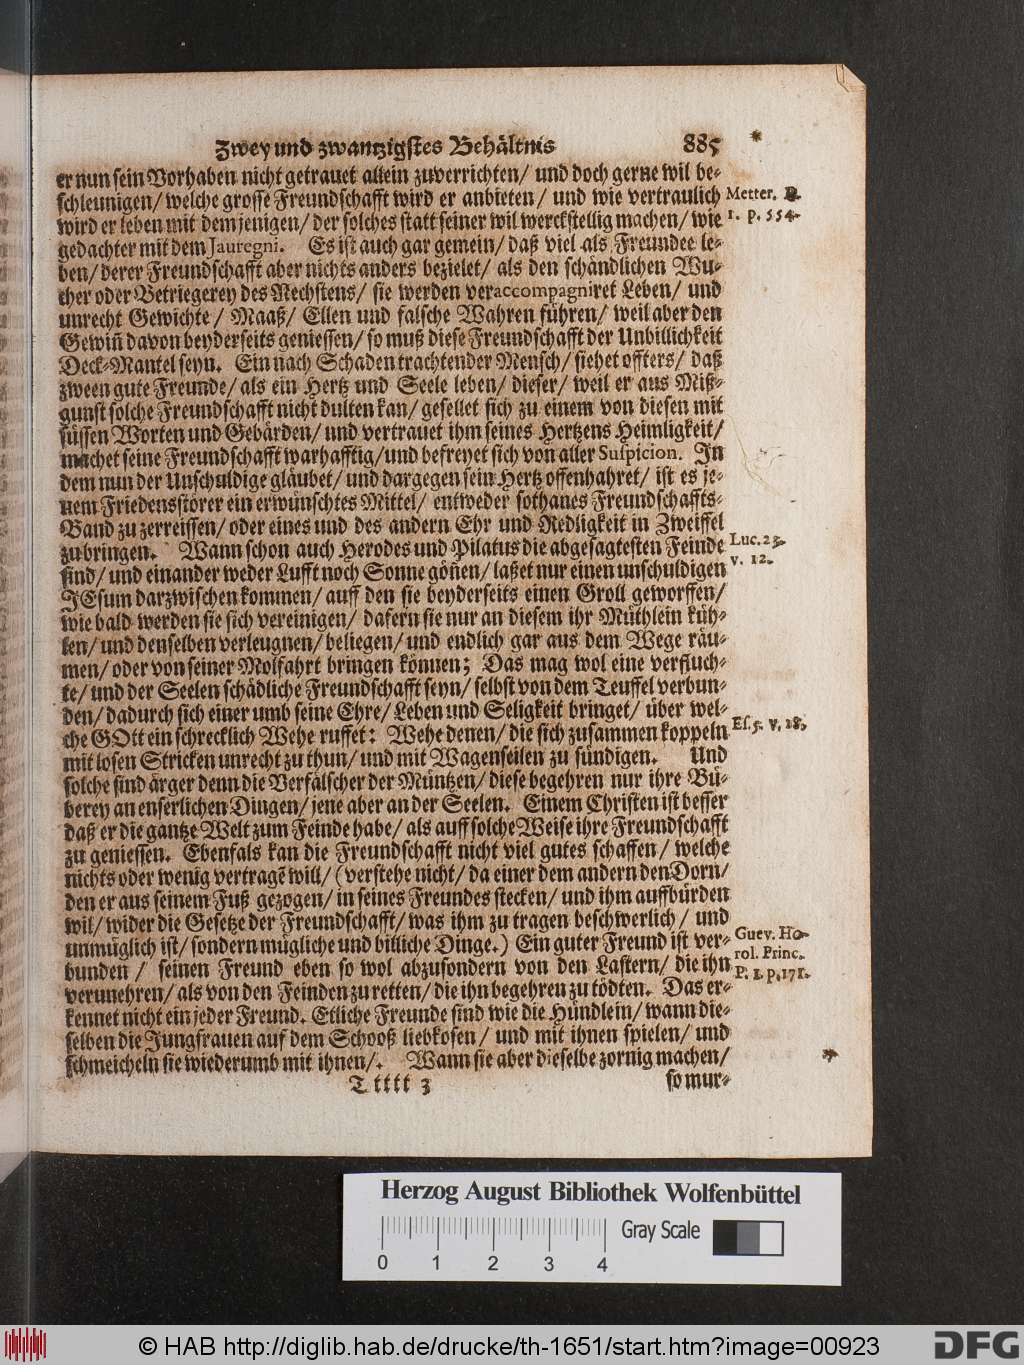 Zwey und zwantzigstes Behältnis 885
er nun sein Vorhaben nicht getrauet allein zuverrichten/ und doch gerne wil be-
schleunigen/ welche grosse Freundschafft wird er anbieten/ und wie vertraulich
Metter.
wird er leben mit demjenigen/ der solches statt seiner wil werckstellig machen/ wie
1. p. 554.
gedachter mit dem Jauregni. Es ist auch gar gemein/ daß viel als Freundee le-
ben/ derer Freundschafft aber nichts anders bezielet/ als den schändlichen Wu-
cher oder Betriegerey des Nechstens/ sie werden veraccompagniret Leben/ und
unrecht Gewichte/ Maaß/ Ellen und falsche Wahren führen/ weil aber den
Gewiñ davon beyderseits geniessen/ so muß diese Freundschafft der Unbillichkeit
Deck-Mantel seyn. Ein nach Schaden trachtender Mensch/ siehet offters/ daß
zween gute Freunde/ als ein Hertz und Seele leben/ dieser/ weil er aus Miß-
gunst solche Freundschafft nicht dulten kan/ gesellet sich zu einem von diesen mit
süssen Worten und Gebärden/ und vertrauet ihm seines Hertzens Heimligkeit/
machet seine Freundschafft warhafftig/ und befreyet sich von aller Suspicion. In
dem nun der Unschuldige gläubet/ und dargegen sein Hertz offenhahret/ ist es je-
nem Friedensstörer ein erwünschtes Mittel/ entweder sothanes Freundschaffts-
Band zu zerreissen/ oder eines und des andern Ehr und Redligkeit in Zweiffel
zubringen. Wann schon auch Herodes und Pilatus die abgesagtesten Feinde
Luc. 23.
v. 12.
sind/ und einander weder Lufft noch Sonne göñen/ laßet nur einen unschuldigen
JEsum darzwischen kommen/ auff den sie beyderseits einen Groll geworffen/
wie bald werden sie sich vereinigen/ dafern sie nur an diesem ihr Müthlein küh-
len/ und denselben verleugnen/ beliegen/ und endlich gar aus dem Wege räu-
men/ oder von seiner Wolfahrt bringen können; Das mag wol eine verfluch-
te/ und der Seelen schädliche Freundschafft seyn/ selbst von dem Teuffel verbun-
den/ dadurch sich einer umb seine Ehre/ Leben und Seligkeit bringet/ über wel-
che GOtt ein schrecklich Wehe ruffet: Wehe denen/ die sich zusammen koppeln
Es. 5. v. 18.
mit losen Stricken unrecht zu thun/ und mit Wagenseilen zu sündigen. Und
solche sind ärger denn die Verfälscher der Müntzen/ diese begehren nur ihre Bü-
berey an euserlichen Dingen/ jene aber an der Seelen. Einem Christen ist besser
daß er die gantze Welt zum Feinde habe/ als auff solche Weise ihre Freundschafft
zu geniessen. Ebenfals kan die Freundschafft nicht viel gutes schaffen/ welche
nichts oder wenig vertragē will/ (verstehe nicht/ da einer dem andern den Dorn/
den er aus seinem Fuß gezogen/ in seines Freundes stecken/ und ihm auffbürden
wil/ wider die Gesetze der Freundschafft/ was ihm zu tragen beschwerlich/ und
unmüglich ist/ sondern mügliche und billiche Dinge.) Ein guter Freund ist ver-
Guev. Ho-
rol. Princ.
P. 1. p. 171.
bunden/ seinen Freund eben so wol abzusondern von den Lastern/ die ihn
verunehren/ als von den Feinden zu retten/ die ihn begehren zu tödten. Das er-
kennet nicht ein jeder Freund. Etliche Freunde sind wie die Hündlein/ wann die-
selben die Jungfrauen auf dem Schooß liebkosen/ und mit ihnen spielen/ und
schmeicheln sie wiederumb mit ihnen/. Wann sie aber dieselbe zornig machen/
Ttttt 3 so mur-
Herzog August Bibliothek Wolfenbüttel
Gray Scale
0 1 2 3 4
© HAB http://diglib.hab.de/drucke/th-1651/start.htm?image=00923
DFG